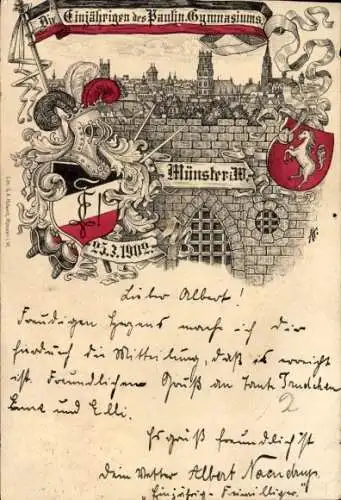 Die Einjährigen des Paulin. Gymnasiums
Münster i/W.
25.3.1902.
Lieber Albert!
Freudigen Herzens mache ich Dir
hierdurch die Mitteilung, daß es erreicht
ist. Freundlichen Gruß an Tante
und Elli.
2
Es grüßt freundlichst
Dein Vetter Albert
"Einjährig-Freiwilliger."